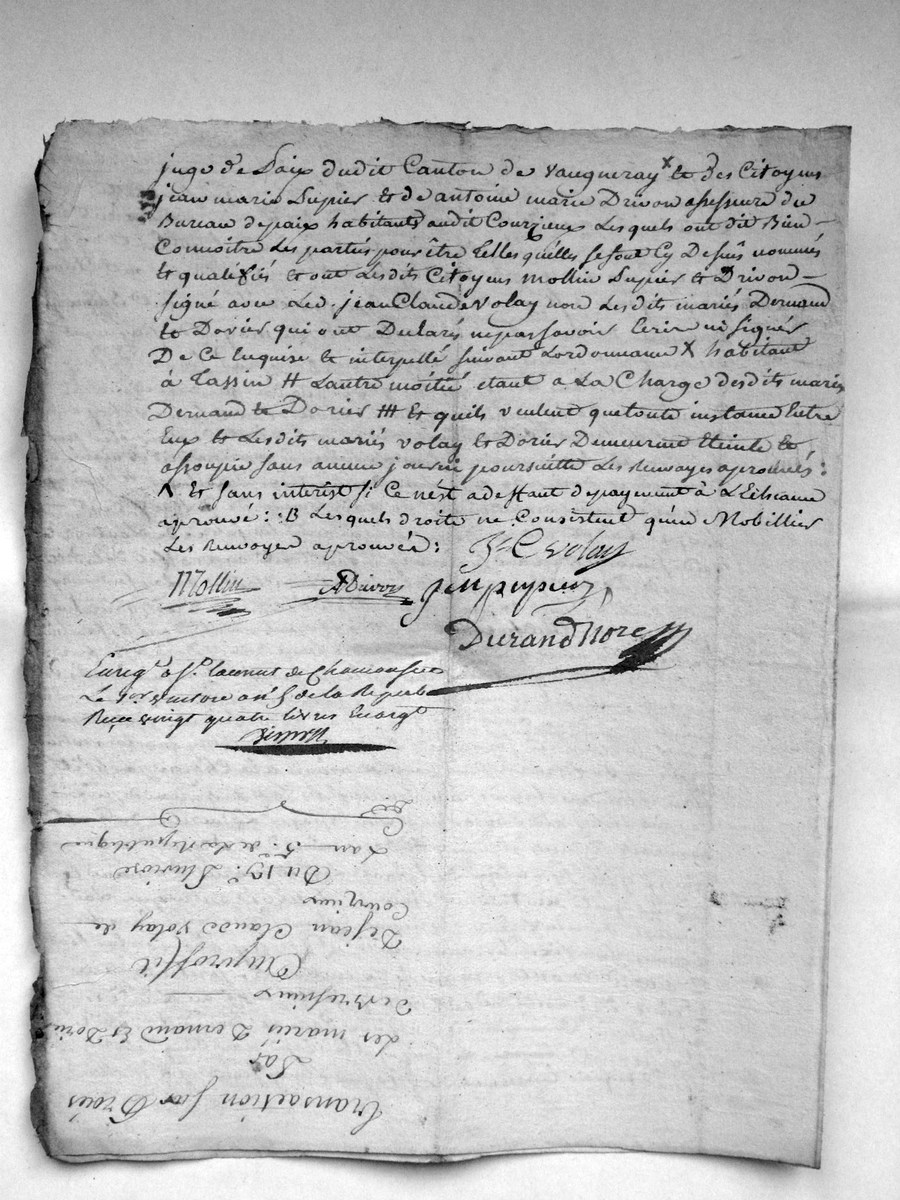 juge de Paix dudit Canton de Vaugneray X & des Citoyens
jean marie Supier & de antoine marie Drivon assesseure du
Bureau depaix habitants audit Courzieux Lesquels ont dit Bien
Connoître Les parties pour être telles quelles se sont Cy Dessus nommés
& qualifiés & ont Lesdits Citoyens Mollin Supier & Drivon
signé avec Led. jean Claude Volay non Lesdits mariés Dernand
& Dorier qui ont Declarés nepas savoir Ecrire ni signer
De Ce Enquise & interpellé suivant Lordonnance X habitant
à Tassin # Lautre moitié etant a La Charge desdits mariés
Dernand & Dorier ### Et quils veulent quetoute instance Entre
Eux & Lesdits mariés Volay & Dorier Demeurent Eteinte &
assoupie sans aucune jour ni poursuitte Les Renvoyes aprouvés :
Λ Et sans interest si Ce nest a deffaut depayement à L'Echeance
aprouvé : B Lesquels droits ne Consistent qu'en Mobillier
Les Renvoyes aprouvés :
J. C. Volay
Mollin ADrivon
Durand Nore
Enreg. à St. Laurent de Chamousset
Le 1er ventose an 5 de la Repub
Reçu vingt quatre livres En argt
transaction sur Droits
Par
des mariés Dernand Et Dorier
Auproffit
Dejean Claude Volay de
Courzieux
Du 19e. Pluviose
Lan 5e. de La Republique